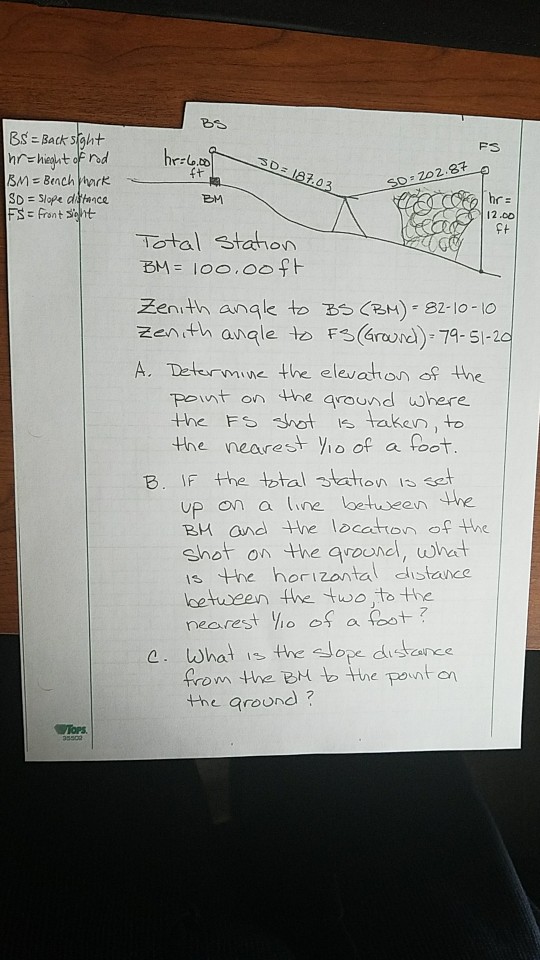 BS = Back sight
hr = hieght of rod
BM = Bench mark
SD = Slope distance
FS = front sight
BS
hr=6.00
ft
BM
SD = 187.03
SD = 202.87
FS
hr =
12.00
ft
Total Station
BM = 100.00 ft
Zenith angle to BS (BM) = 82-10-10
Zenith angle to FS (Ground) = 79-51-20
A. Determine the elevation of the
point on the ground where
the FS shot is taken, to
the nearest 1/10 of a foot.
B. IF the total station is set
up on a line between the
BM and the location of the
shot on the ground, what
is the horizontal distance
between the two, to the
nearest 1/10 of a foot?
C. What is the slope distance
from the BM to the point on
the ground?
TOPS
35502